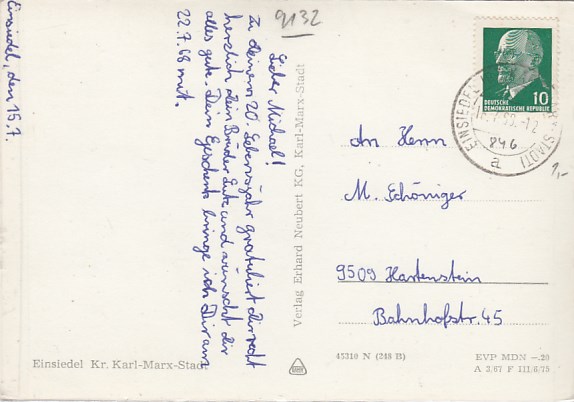 Einsiedel, den 15.7.
Lieber Michael!
Zu deinem 20. Lebensjahr gratuliert dir recht
herzlich dein Bruder Lutz und wünscht dir
alles gute. Dein Geschenk bringe ich Dir am
22.7.68 mit.
9132
Verlag Erhard Neubert KG, Karl-Marx-Stadt
DEUTSCHE
DEMOKRATISCHE REPUBLIK
10
EINSIEDEL
STADT)
846
a
1,-
An Herrn
M. Schöniger
9509 Hartenstein
Bahnhofstr. 45
Einsiedel Kr. Karl-Marx-Stadt
45310 N (248 B)
EVP MDN —.20
A 3/67 F 111/6/75